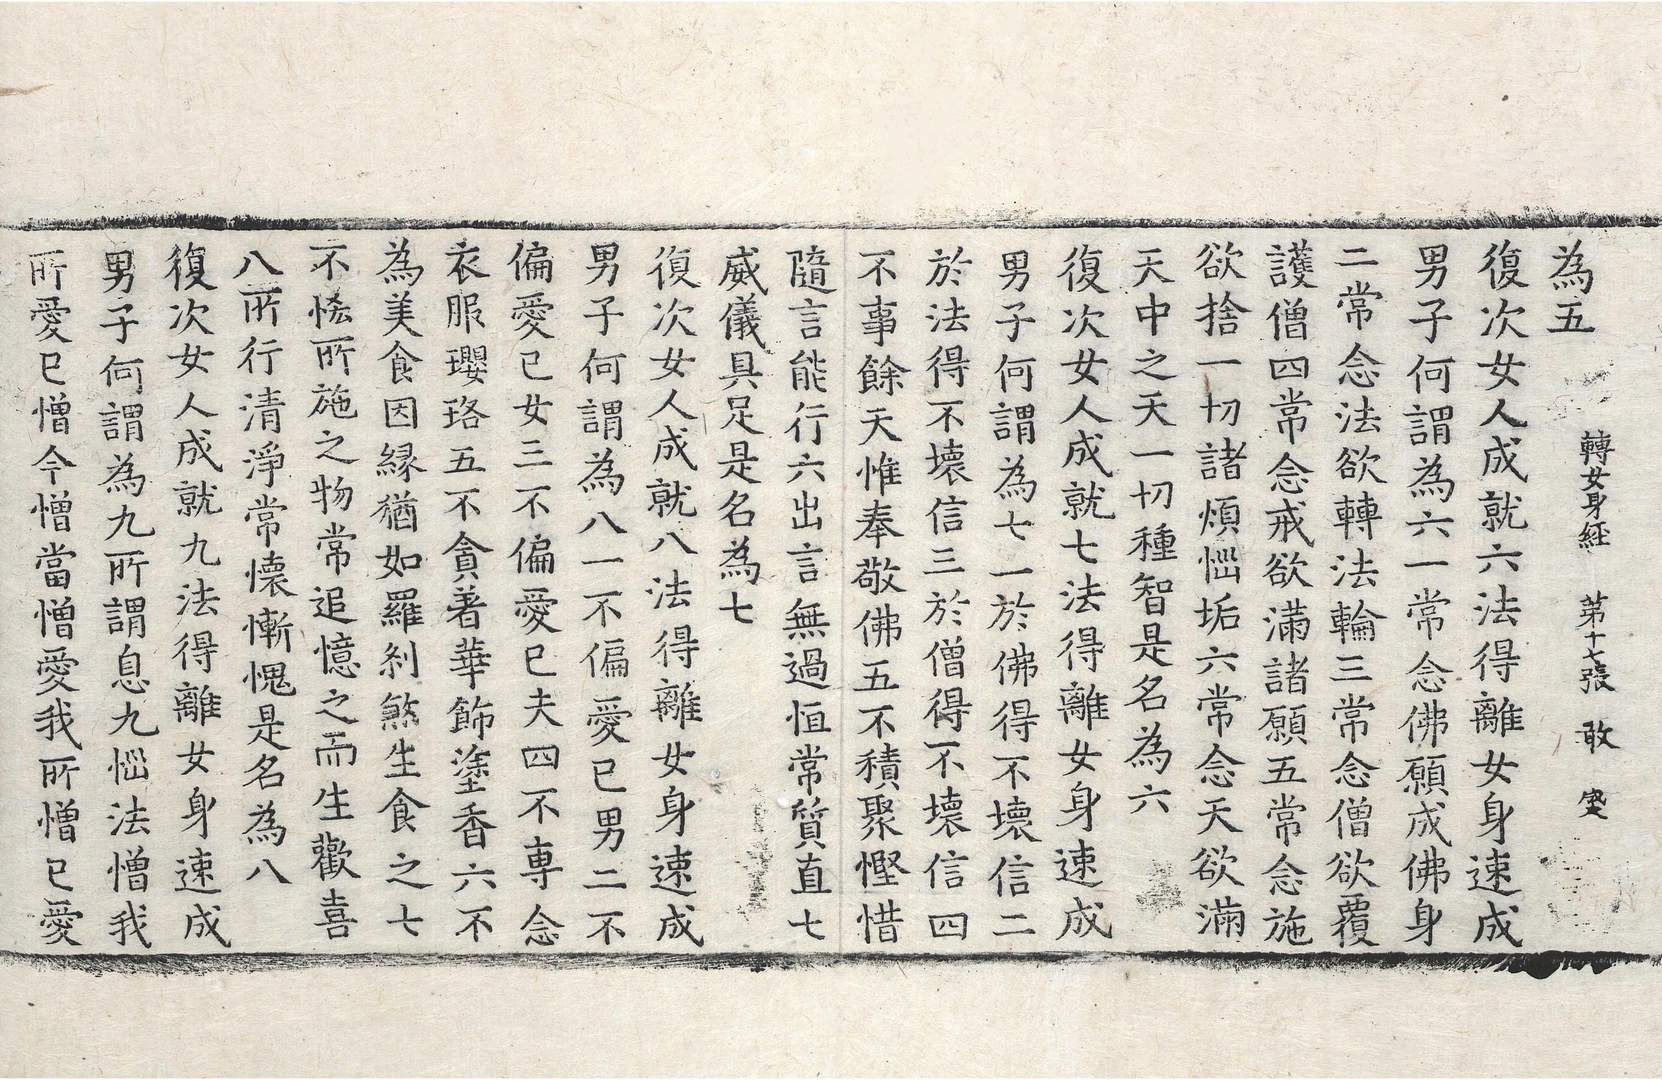 為五
轉女身経 第十七張 敢
復次女人成就六法得離女身速成
男子何謂為六一常念佛願成佛身
二常念法欲轉法輪三常念僧欲覆
護僧四常念戒欲滿諸願五常念施
欲捨一切諸煩惱垢六常念天欲滿
天中之天一切種智是名為六
復次女人成就七法得離女身速成
男子何謂為七一於佛得不壞信二
於法得不壞信三於僧得不壞信四
不事餘天惟奉敬佛五不積聚慳惜
隨言能行六出言無過恒常質直七
威儀具足是名為七
復次女人成就八法得離女身速成
男子何謂為八一不偏愛已男二不
偏愛已女三不偏愛已夫四不專念
衣服瓔珞五不貪著華飾塗香六不
為美食因縁猶如羅剎煞生食之七
不恡所施之物常追憶之而生歡喜
八所行清淨常懷慚愧是名為八
復次女人成就九法得離女身速成
男子何謂為九所謂息九惱法憎我
所愛已憎今憎當憎愛我所憎已愛